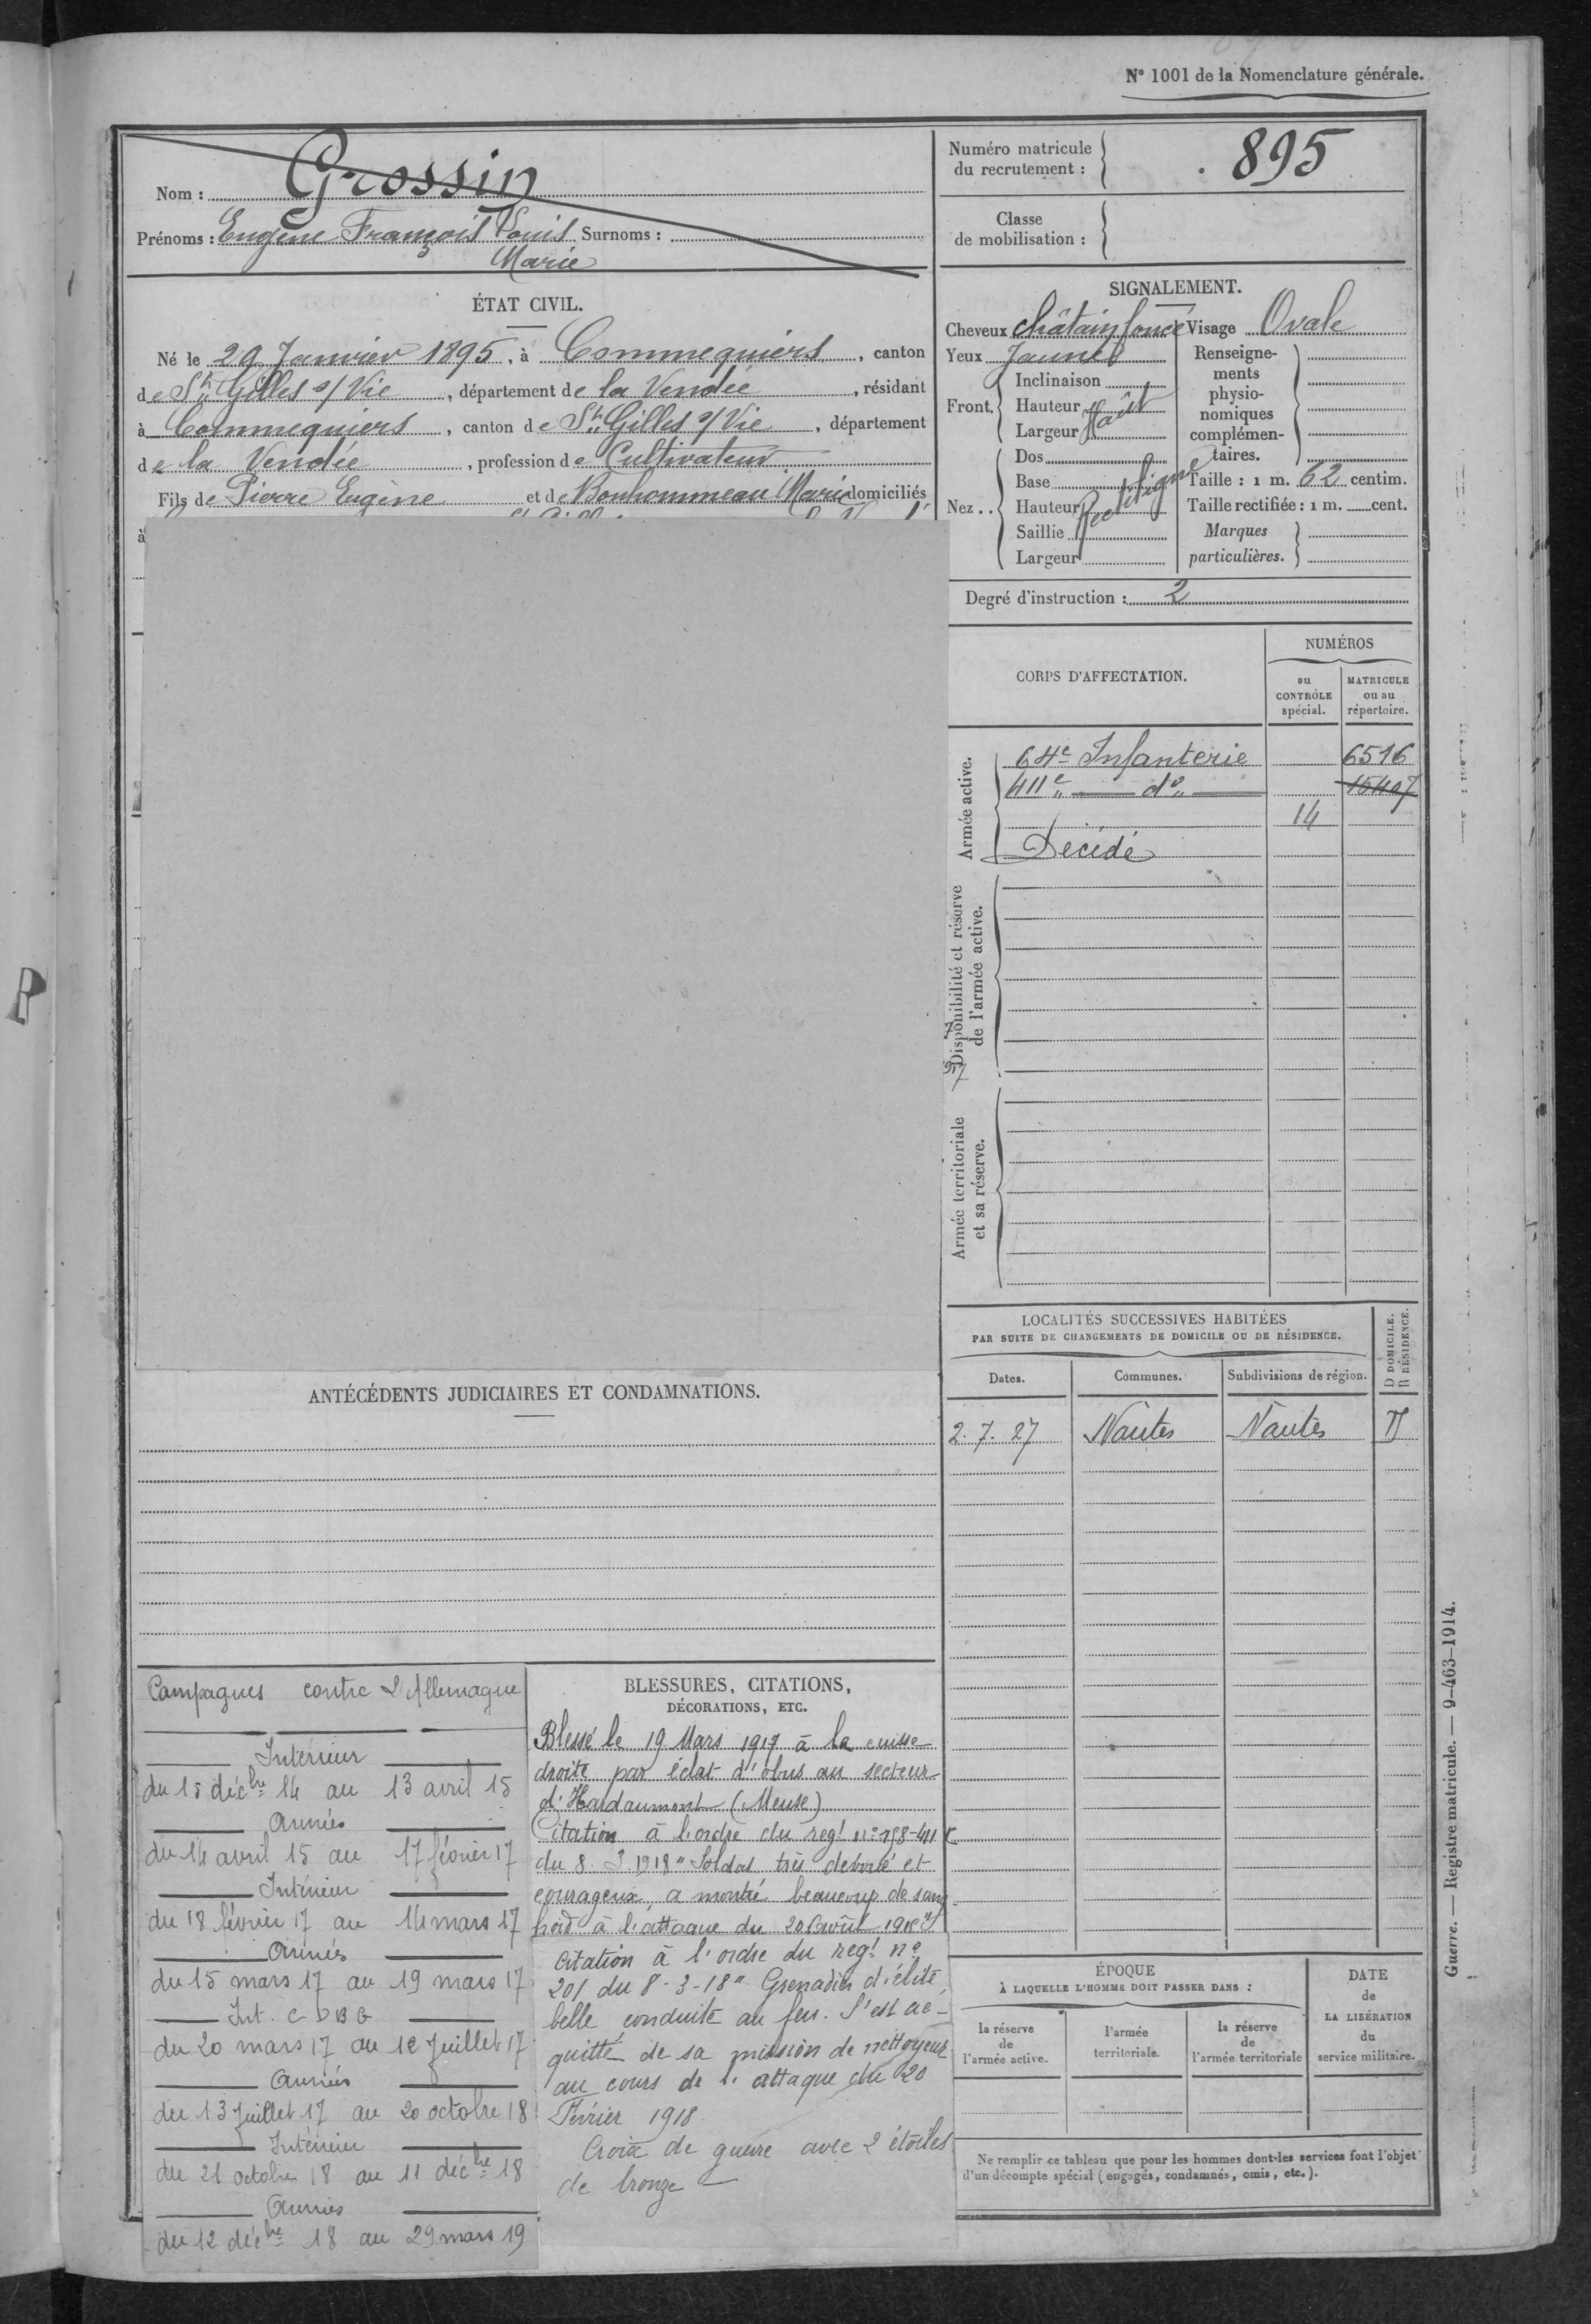 N° 1001 de la Nomenclature générale.
Nom : Grossin
Prénoms : Eugène François Louis Surnoms :
Marie
Numéro matricule
du recrutement :
895
Classe
de mobilisation :
ÉTAT CIVIL.
Né le 29 Janvier 1895, à Commequiers, canton
de St Gilles s/ Vie, département de la Vendée, résidant
à Commequiers, canton de St Gilles s/ Vie, département
de la Vendée, profession de Cultivateur
Fils de Pierre Eugène et de Bonhommeau Marie domiciliés
à
SIGNALEMENT.
Cheveux châtain foncé Visage Ovale
Yeux Jaunes
Front.
Inclinaison
Hauteur Haut
Largeur
Nez..
Dos
Base
Hauteur Rectiligne
Saillie
Largeur
Renseigne-
ments
physio-
nomiques
complémen-
taires.
Taille : 1 m. 62 centim.
Taille rectifiée : 1 m. cent.
Marques
particulières.
Degré d'instruction : 2
CORPS D'AFFECTATION.
NUMÉROS
au
CONTRÔLE
spécial.
MATRICULE
ou au
répertoire.
Armée active.
64e Infanterie 6516
411e " d° " 15407
14
Décédé
Disponibilité et réserve
de l'armée active.
Armée territoriale
et sa réserve.
LOCALITÉS SUCCESSIVES HABITÉES
PAR SUITE DE CHANGEMENTS DE DOMICILE OU DE RÉSIDENCE.
D DOMICILE.
R RÉSIDENCE.
Dates. Communes. Subdivisions de région.
2. 7. 27 Nantes Nantes D
ANTÉCÉDENTS JUDICIAIRES ET CONDAMNATIONS.
Campagnes contre L'Allemagne
Intérieur
du 15 décbre 14 au 13 avril 15
Armées
du 14 avril 15 au 17 février 17
Intérieur
du 18 février 17 au 14 mars 17
Armées
du 15 mars 17 au 19 mars 17
Int. C D B G
du 20 mars 17 au 12 Juillet 17
Armées
du 13 Juillet 17 au 20 octobre 18
Intérieur
du 21 octobre 18 au 11 décbre 18
Armées
du 12 décbre 18 au 29 mars 19
BLESSURES, CITATIONS,
DÉCORATIONS, ETC.
Blessé le 19 Mars 1917 à la cuisse
droite par éclat d'obus au secteur
d'Hardaumont (Meuse)
Citation à l'ordre du regt n° 158-411
du 8 3 1918 " Soldat très dévoué et
courageux, a montré beaucoup de sang
froid à l'attaque du 20
citation à l'ordre du regt n°
201 du 8-3-18 " Grenadier d'élite,
belle conduite au feu. S'est ac-
quitté de sa mission de nettoyeur
au cours de l'attaque du 20
Février 1918
Croix de guerre avec 2 étoiles
de bronze
ÉPOQUE
À LAQUELLE L'HOMME DOIT PASSER DANS :
la réserve
de
l'armée active.
l'armée
territoriale.
la réserve
de
l'armée territoriale
DATE
de
LA LIBÉRATION
du
service militaire.
Ne remplir ce tableau que pour les hommes dont les services font l'objet
d'un décompte spécial (engagés, condamnés, omis, etc.).
Guerre. — Registre matricule. — 9-463-1914.